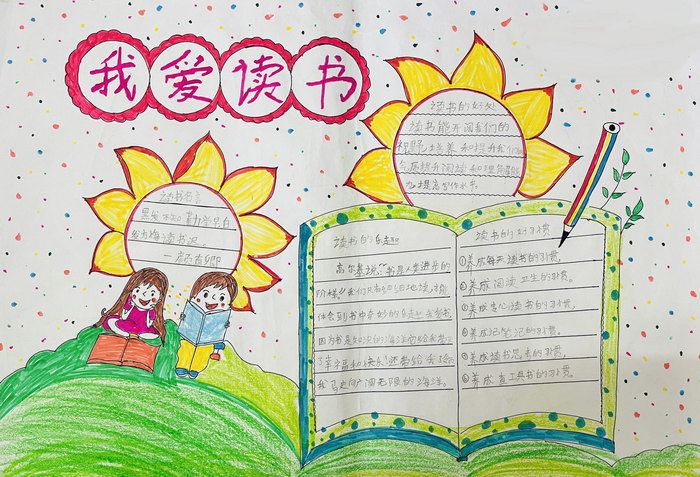 我爱读书
读书名言
黑发不知勤学早白
首方悔读书迟。
—颜真卿
读书的好处
读书能开阔我们的
视野,培养和提升我们
气质提升阅读和理解
也提高写作水平
读书的乐趣
高尔基说:"书是人类进步的
阶梯"我们只有
体会到书中奇妙的
因为书是知识的海洋它给我带
幸福和快乐!还带给我
广阔无限的海洋。
读书的好习惯
①养成每天读书的习惯,
②养成阅读卫生的习惯。
③养成专心读书的习惯,
④养成记笔记的习惯,
⑤养成读书思考的习惯,
⑥养成查工具书的习惯。